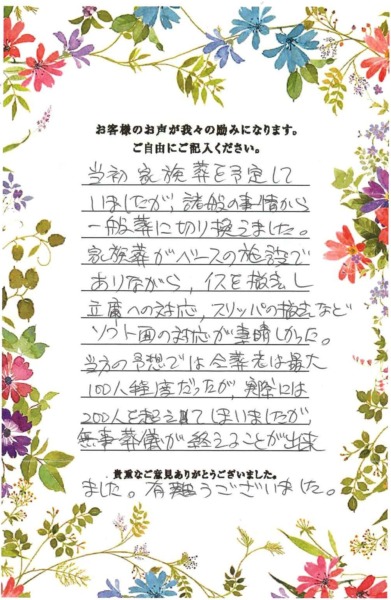 お客様のお声が我々の励みになります。
ご自由にご記入ください。
当初 家族葬を予定して
いましたが、諸般の事情から
一般葬に切り換えました。
家族葬がベースの施設で
ありながら、イスを撤去し
立席への対応、スリッパの撤去など
ソフト面の対応が素晴しかった。
当方の予想では会葬者は最大
100人程度だったが、実際には
200人を超えてしまいましたが
無事葬儀が終えることが出来
貴重なご意見ありがとうございました。
ました。有難うございました。